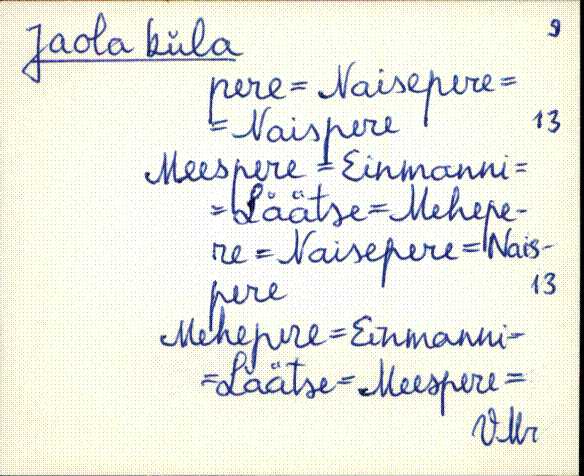 Jaola küla 9
pere = Naisepere =
= Naispere 13
Meespere = Einmanni =
= Läätse = Mehepe-
re = Naisepere = Nais-
pere 13
Mehepere = Einmanni -
= Läätse = Meespere =
VMr